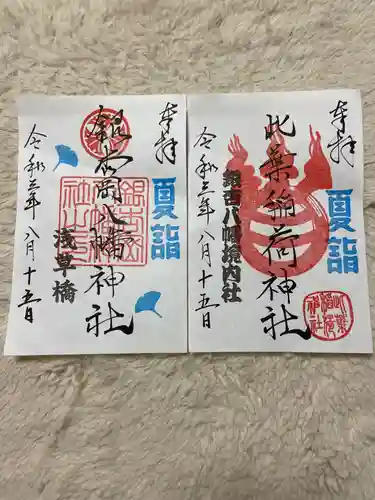 奉拝
夏詣
銀杏岡八幡神社
浅草橋
令和三年八月十五日
奉拝
夏詣
此葉稲荷神社
銀杏岡八幡境内社
令和三年八月十五日
此葉稲荷神社